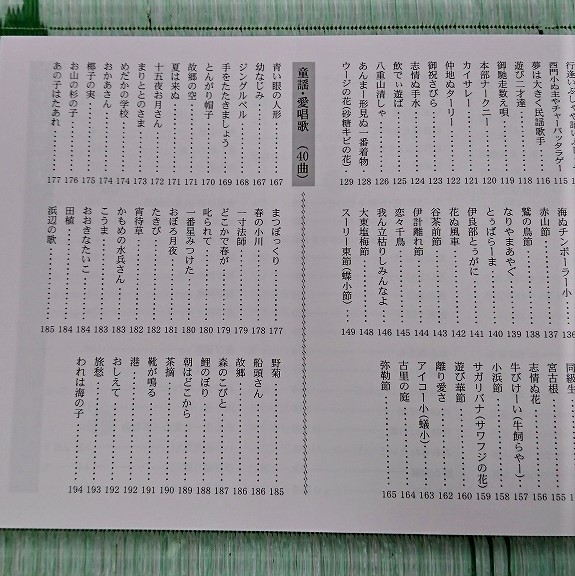 西門小ぬ主やチャーバッタラゲー 116
夢は大きく民謡歌手 116
遊び二才達 118
御馳走数え唄 119
本部ナークニー 120
カイサレー 121
仲地ぬターリー 122
御祝さびら 123
志情ぬ手水 124
飲でぃ遊ば 125
八重山清しゃ 126
あんまー形見ぬ一番着物 128
ウージの花(砂糖キビの花) 129
海ぬチンボーラー小 137
赤山節 138
鷲の鳥節 139
なりやまあやぐ 139
とぅばらーま 140
伊良部とぅがに 141
花ぬ風車 142
谷茶前節 143
伊計離れ節 144
恋々千鳥 145
我ん立枯りしみんなよ 146
大東塩梅節 148
スーリー東節(蝶小節) 149
同級生 155
宮古根 155
志情ぬ花 156
牛びけーい(牛飼らやー) 157
小浜節 158
サガリバナ(サワフジの花) 159
遊び華節 160
離り愛さ 162
アイコー小(蟻小) 163
古里の庭 164
弥勒節 165
童謡・愛唱歌 (40曲)
青い眼の人形 167
幼なじみ 167
ジングルベル 168
手をたたきましょう 169
とんがり帽子 170
故郷の空 171
夏は来ぬ 171
十五夜お月さん 172
まりととのさま 173
めだかの学校 174
おかあさん 174
椰子の実 175
お山の杉の子 176
あの子はたあれ 177
まつぼっくり 177
春の小川 178
一寸法師 179
どこかで春が 179
叱られて 180
一番星みつけた 180
おぼろ月夜 181
たきび 182
宵待草 182
かもめの水兵さん 183
こうま 183
おおきなたいこ 184
田植 184
浜辺の歌 185
野菊 185
船頭さん 186
故郷 186
森のこびと 187
鯉のぼり 188
朝はどこから 189
茶摘 190
靴が鳴る 191
港 192
おしえて 192
旅愁 193
われは海の子 194